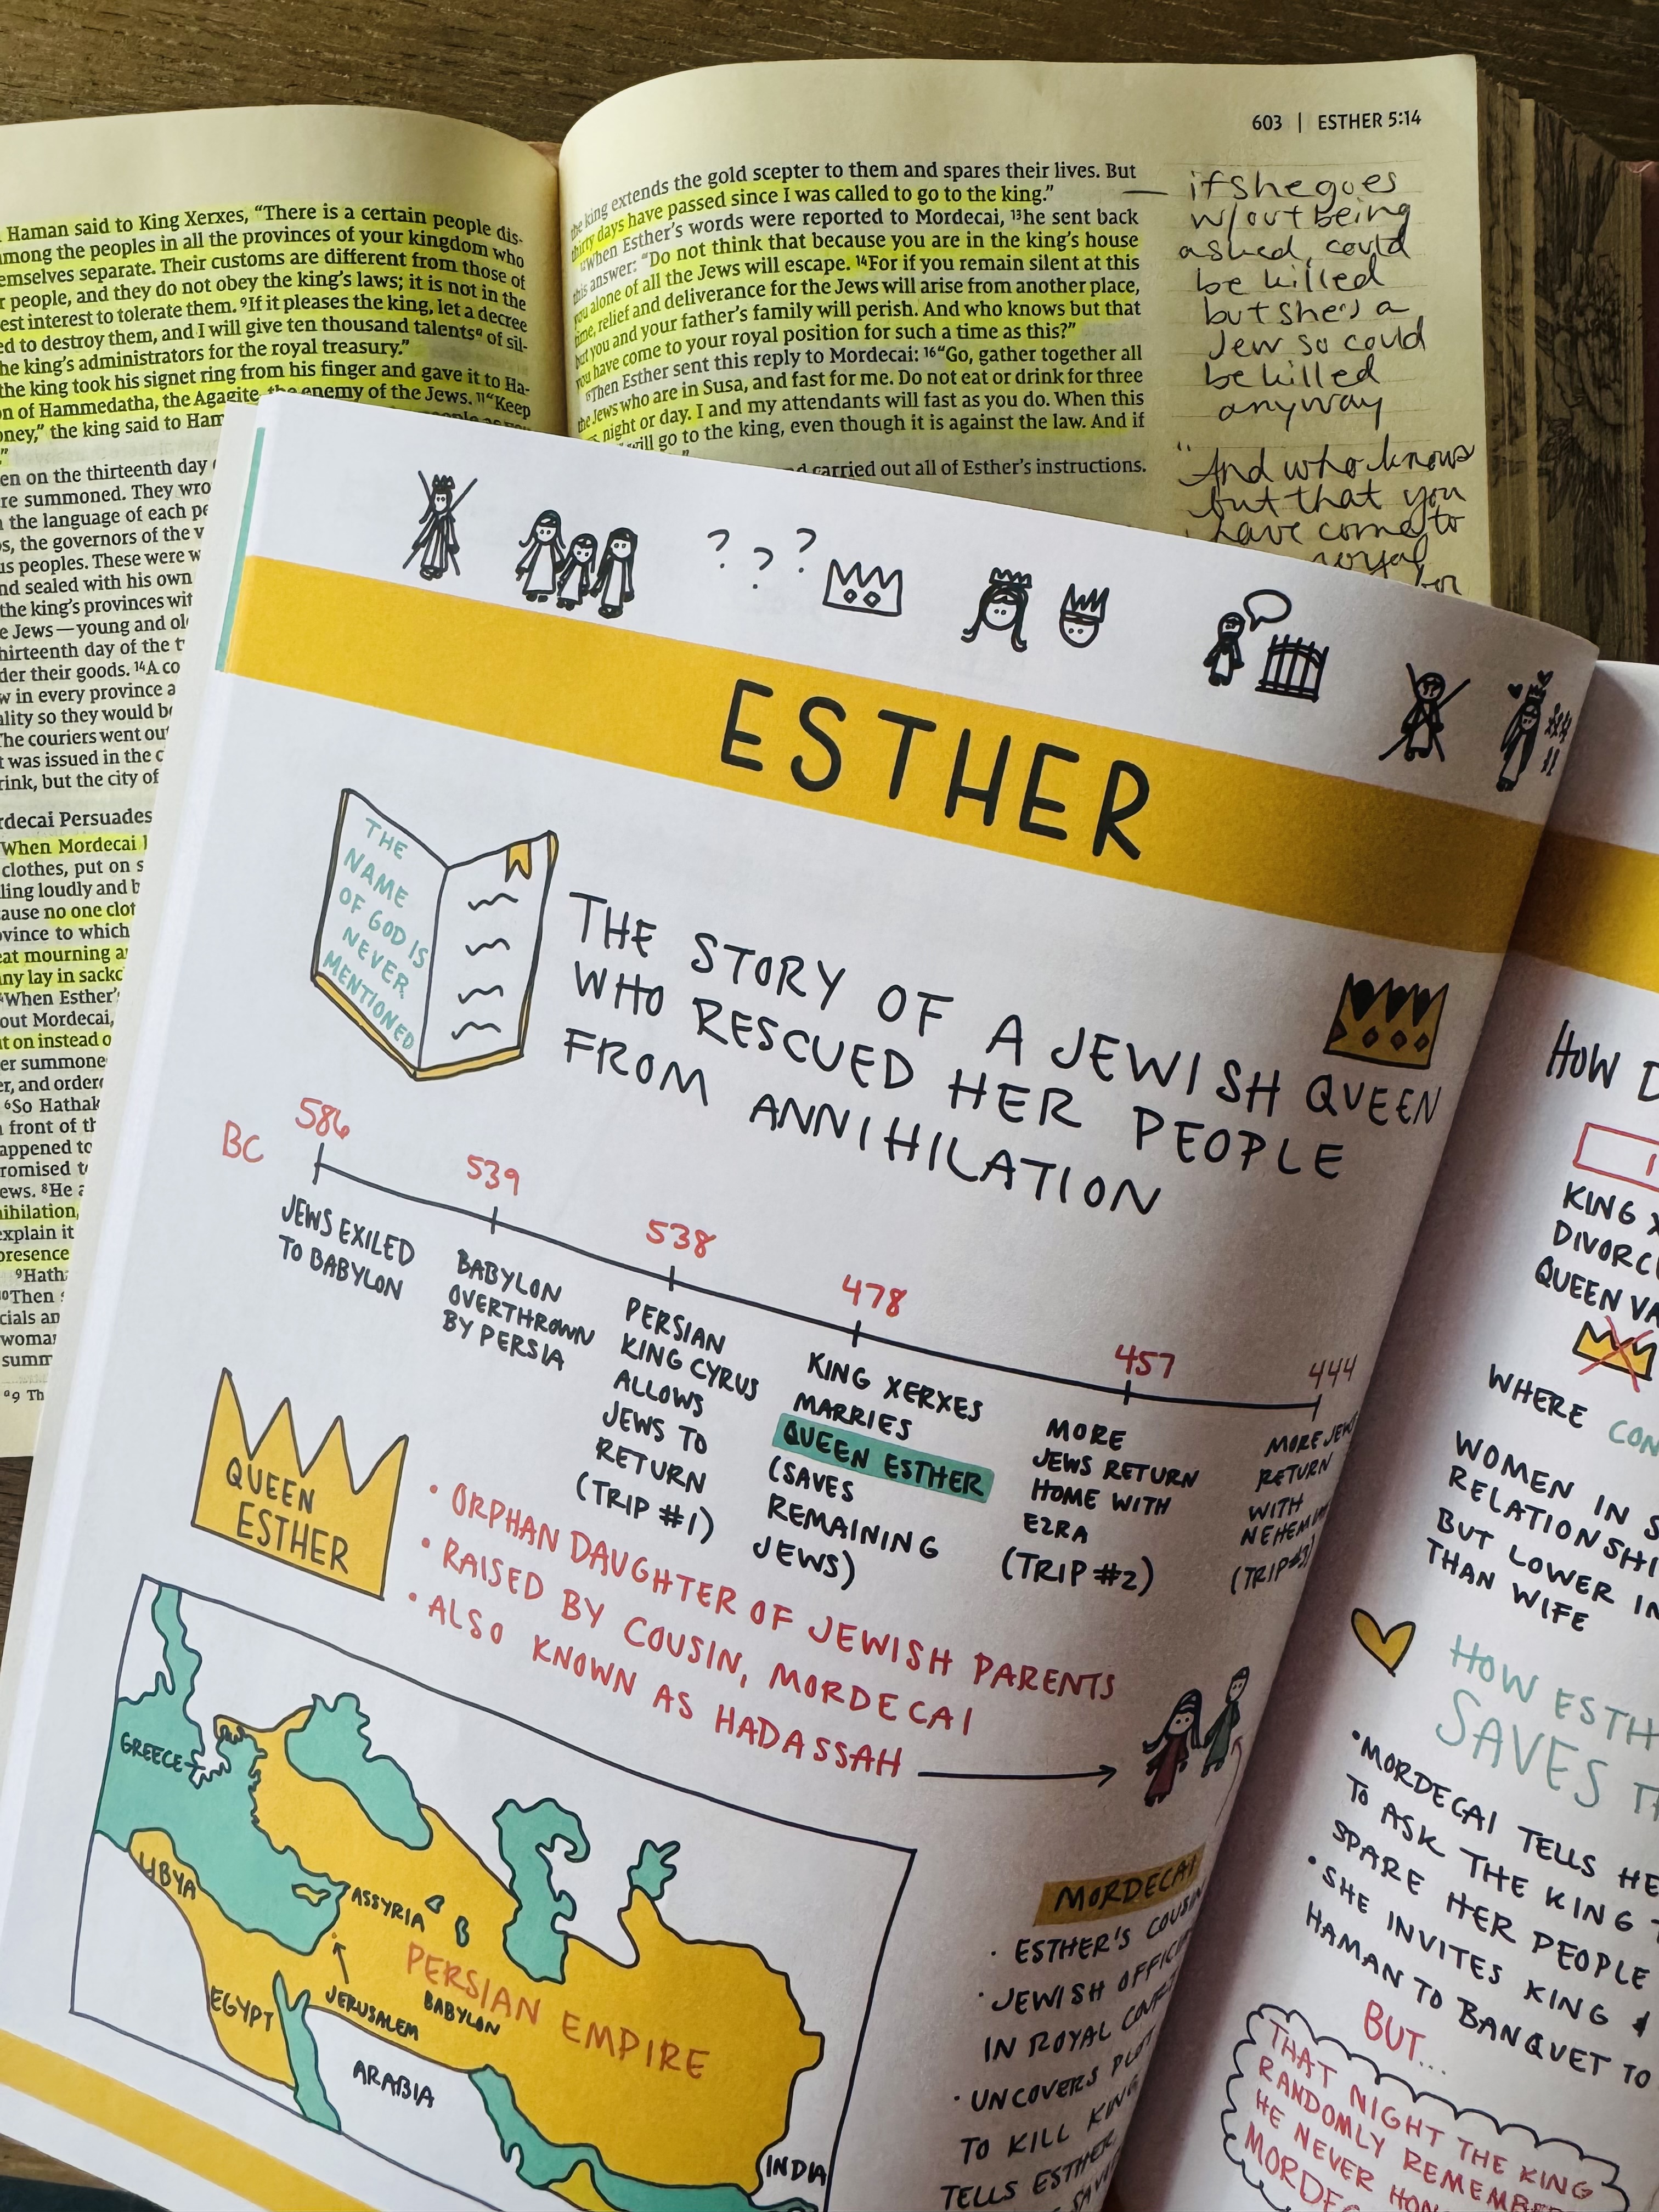 603 | ESTHER 5:14
Haman said to King Xerxes, “There is a certain people dis-
among the peoples in all the provinces of your kingdom who
emselves separate. Their customs are different from those of
r people, and they do not obey the king’s laws; it is not in the
est interest to tolerate them. ⁹If it pleases the king, let a decree
ed to destroy them, and I will give ten thousand talentsᵃ of sil-
he king’s administrators for the royal treasury.”
the king took his signet ring from his finger and gave it to Ha-
on of Hammedatha, the Agagite, the enemy of the Jews. ¹¹“Keep
oney,” the king said to Ham
en on the thirteenth day
re summoned. They wro
the language of each pe
os, the governors of the v
us peoples. These were w
nd sealed with his own
the king’s provinces wit
e Jews — young and ol
hirteenth day of the t
der their goods. ¹⁴A co
w in every province a
ality so they would be
The couriers went out
t was issued in the c
rink, but the city of
rdecai Persuades
When Mordecai
clothes, put on s
ling loudly and b
ause no one clot
ovince to which
eat mourning a
ny lay in sackc
When Esther’s
out Mordecai,
t on instead o
er summone
er, and ordere
⁶So Hathak
front of th
appened to
romised to
ews. ⁸He a
ihilation,
explain it
presence
⁹Hath
¹⁰Then
cials an
woman
summ
ᵃ9 Th
the king extends the gold scepter to them and spares their lives. But
thirty days have passed since I was called to go to the king.”
¹²When Esther’s words were reported to Mordecai, ¹³he sent back
this answer: “Do not think that because you are in the king’s house
you alone of all the Jews will escape. ¹⁴For if you remain silent at this
time, relief and deliverance for the Jews will arise from another place,
but you and your father’s family will perish. And who knows but that
you have come to your royal position for such a time as this?”
¹⁵Then Esther sent this reply to Mordecai: ¹⁶“Go, gather together all
the Jews who are in Susa, and fast for me. Do not eat or drink for three
night or day. I and my attendants will fast as you do. When this
will go to the king, even though it is against the law. And if
carried out all of Esther’s instructions.
— if she goes
w/out being
asked, could
be killed
but she's a
Jew so could
be killed
anyway
"And who knows
but that you
have come to
royal
for
? ? ?
ESTHER
THE
NAME
OF GOD IS
NEVER
MENTIONED
THE STORY OF A JEWISH QUEEN
WHO RESCUED HER PEOPLE
FROM ANNIHILATION
BC
586
JEWS EXILED
TO BABYLON
539
BABYLON
OVERTHROWN
BY PERSIA
538
PERSIAN
KING CYRUS
ALLOWS
JEWS TO
RETURN
(TRIP #1)
478
KING XERXES
MARRIES
QUEEN ESTHER
(SAVES
REMAINING
JEWS)
457
MORE
JEWS RETURN
HOME WITH
EZRA
(TRIP #2)
444
MORE JEWS
RETURN
WITH
NEHEMIAH
(TRIP #3)
QUEEN
ESTHER
• ORPHAN DAUGHTER OF JEWISH PARENTS
• RAISED BY COUSIN, MORDECAI
• ALSO KNOWN AS HADASSAH
GREECE
LIBYA
ASSYRIA
PERSIAN EMPIRE
BABYLON
JERUSALEM
EGYPT
ARABIA
INDIA
MORDECAI
• ESTHER'S COUSIN
• JEWISH OFFIC
IN ROYAL COURT
• UNCOVERS PLOT
TO KILL KING
TELLS ESTHER,
HOW D
1
KING X
DIVORC
QUEEN VA
WHERE CON
WOMEN IN S
RELATIONSHI
BUT LOWER IN
THAN WIFE
HOW ESTH
SAVES T
• MORDECAI TELLS HE
TO ASK THE KING T
SPARE HER PEOPLE
• SHE INVITES KING &
HAMAN TO BANQUET TO
BUT...
THAT NIGHT THE KING
RANDOMLY REMEMB
HE NEVER HON
MORDEC